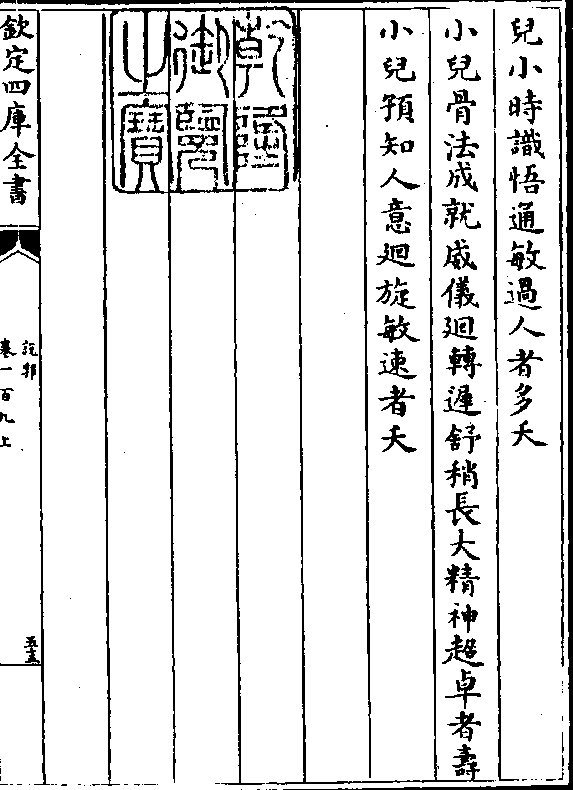 兒小時識悟通敏過人者多夭
小兒骨法成就威儀廻轉遲舒稍長大精神超卓者壽
小兒預知人意廻旋敏速者夭
乾隆
御覽
之寶
欽定四庫全書
說郛
卷一百九上
五十五